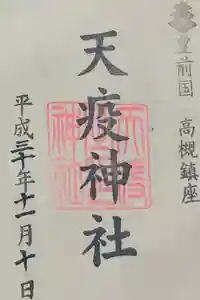 豊前国
高槻鎮座
天疫神社
平成三十年十一月十日